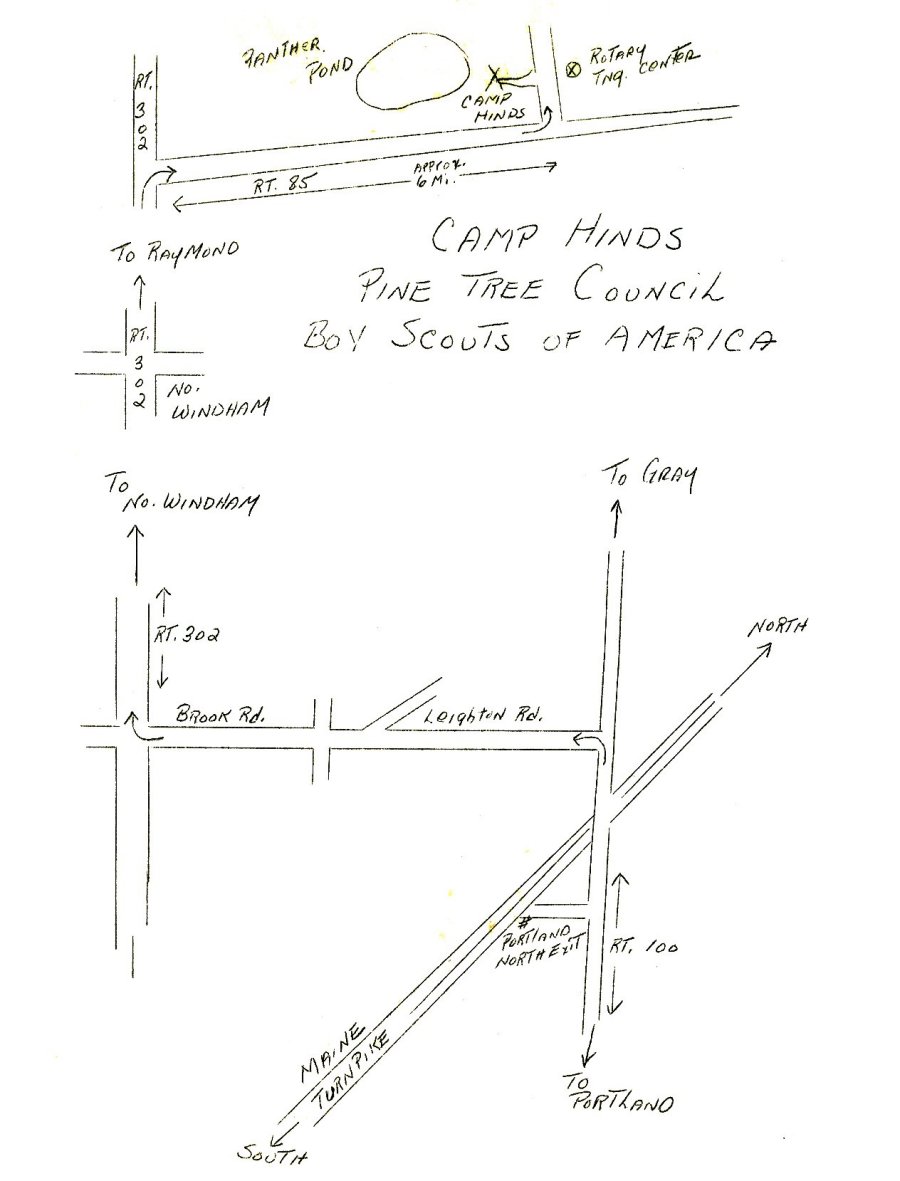 PANTHER
POND
ROTARY
TNG. CENTER
CAMP
HINDS
RT.
302
APPROX.
6 MI.
RT. 85
CAMP HINDS
PINE TREE COUNCIL
BOY SCOUTS OF AMERICA
TO RAYMOND
RT.
302
NO.
WINDHAM
TO
NO. WINDHAM
TO GRAY
RT. 302
NORTH
BROOK Rd.
Leighton Rd.
#
PORTLAND
NORTH EXIT
RT. 100
MAINE
TURNPIKE
TO
PORTLAND
SOUTH